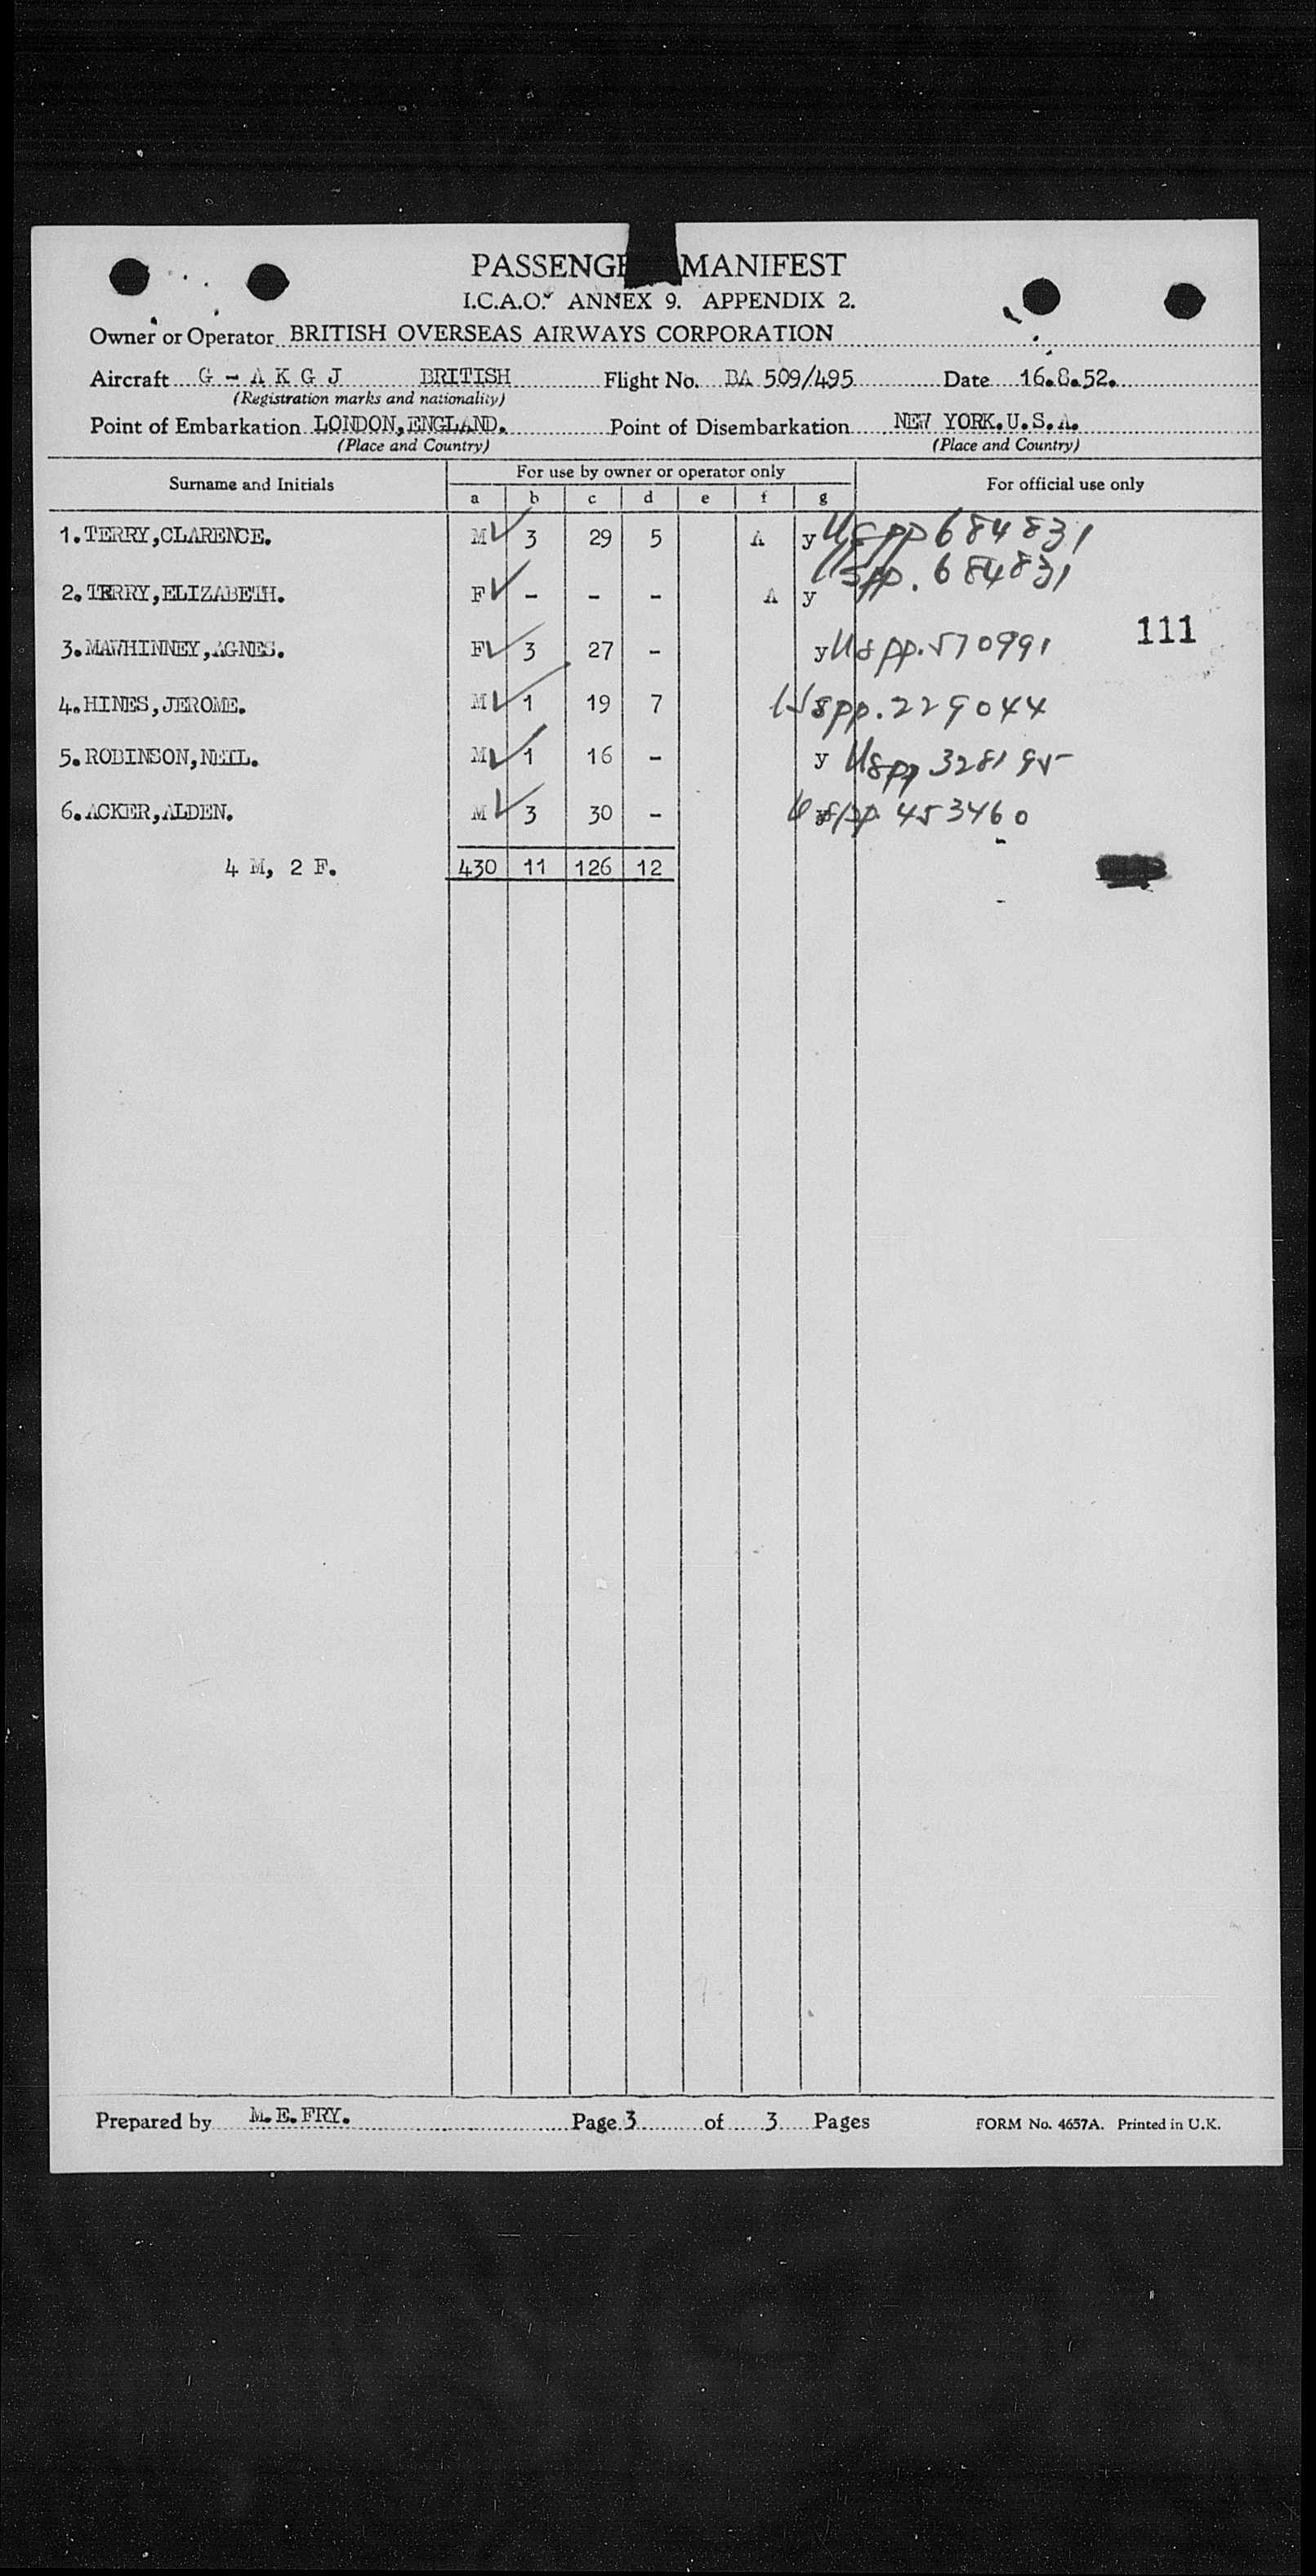 PASSENGE MANIFEST
I.C.A.O. ANNEX 9. APPENDIX 2.
Owner or Operator BRITISH OVERSEAS AIRWAYS CORPORATION
Aircraft G - A K G J BRITISH Flight No. BA 509/495 Date 16.8.52.
(Registration marks and nationality)
Point of Embarkation LONDON,ENGLAND. Point of Disembarkation NEW YORK.U.S.A.
(Place and Country) (Place and Country)
Surname and Initials For use by owner or operator only For official use only
a b c d e f g
1. TERRY,CLARENCE. M ✓ 3 29 5 A y USpp 684831
2. TERRY,ELIZABETH. F ✓ - - - A y USpp. 684831
111
3. MAWHINNEY,AGNES. F ✓ 3 27 - y USpp. 570991
4. HINES,JEROME. M ✓ 1 19 7 USpp. 229044
5. ROBINSON,NEIL. M ✓ 1 16 - y USpp 328195
6. ACKER,ALDEN. M ✓ 3 30 - USpp 453460
4 M, 2 F. 430 11 126 12
Prepared by M.E.FRY. Page 3 of 3 Pages FORM No. 4657A. Printed in U.K.